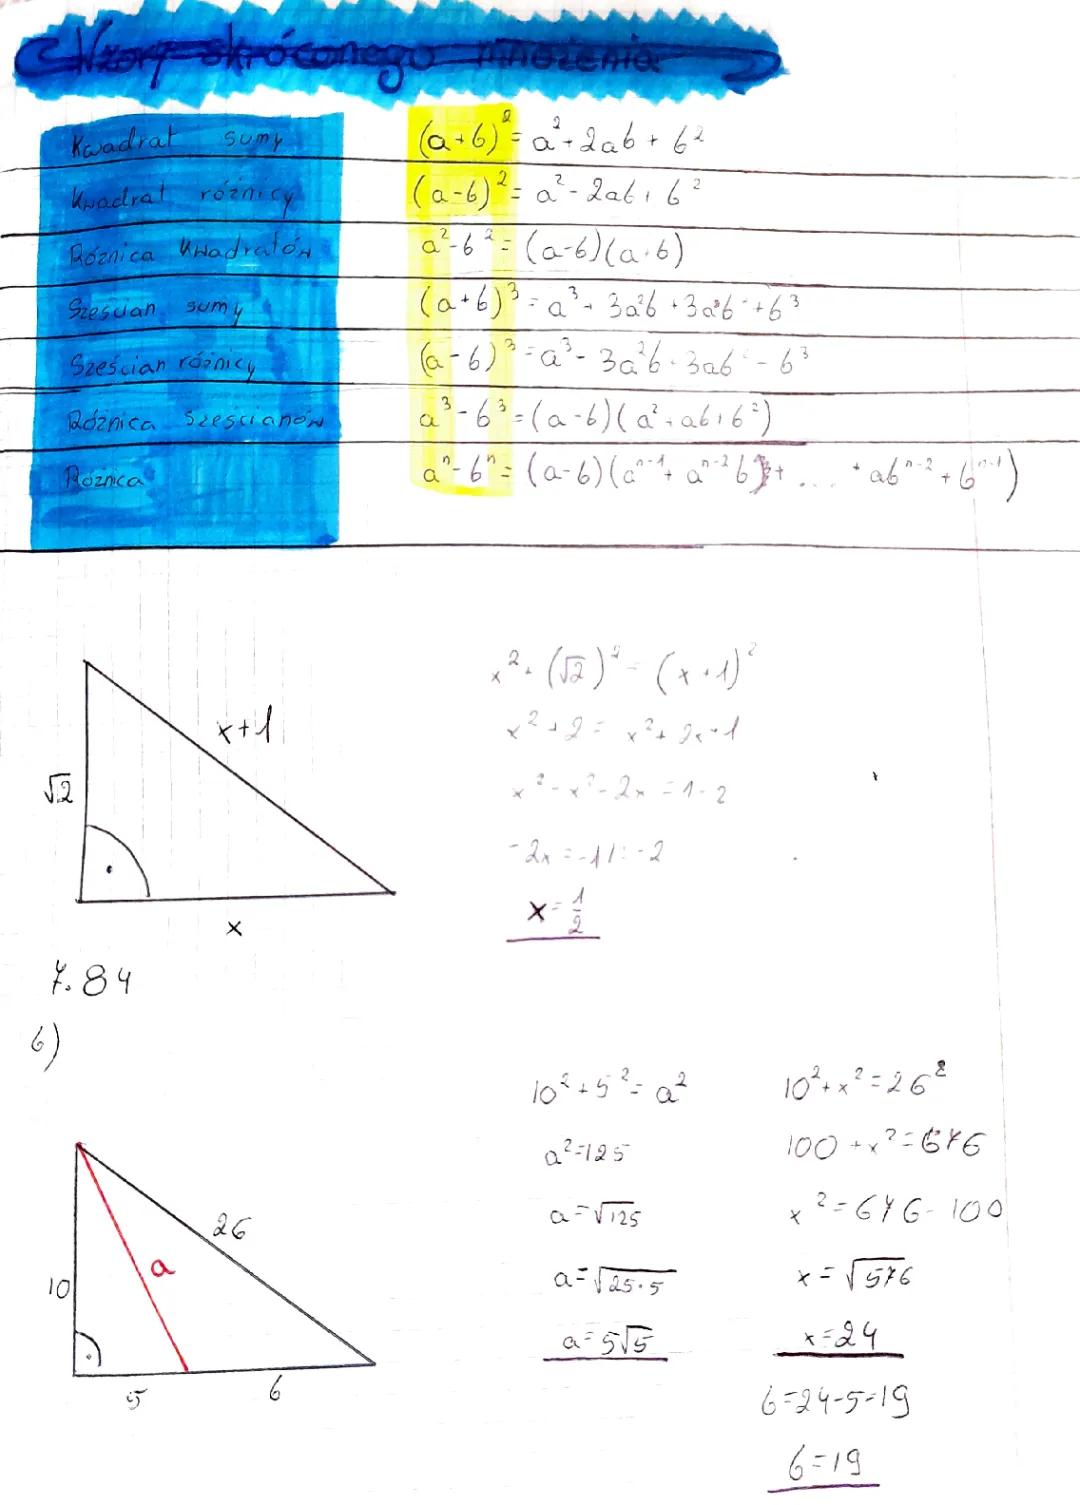 Wzory skróconego mnożenia
Kwadrat sumy (a+b)² = a² + 2ab + b²
Kwadrat różnicy (a-b)² = a² - 2ab + b²
Różnica kwadratów a² - b² = (a-b)(a+b)
Sześcian sumy (a+b)³ = a³ + 3a²b + 3ab² + b³
Sześcian różnicy (a-b)³ = a³ - 3a²b + 3ab² - b³
Różnica sześcianów a³ - b³ = (a-b)(a² + ab + b²)
Różnica aⁿ - bⁿ = (a-b)(aⁿ⁻¹ + aⁿ⁻²b + .... + abⁿ⁻² + bⁿ⁻¹)
√2
x+1
x
x² + (√2)² = (x+1)²
x² + 2 = x² + 2x + 1
x² - x² - 2x = 1 - 2
-2x = -1 /: -2
x = 1/2
7.84
b)
10
a
26
5
b
10² + 5² = a²
a² = 125
a = √125
a = √25·5
a = 5√5
10² + x² = 26²
100 + x² = 676
x² = 676 - 100
x = √576
x = 24
b = 24 - 5 = 19
b = 19